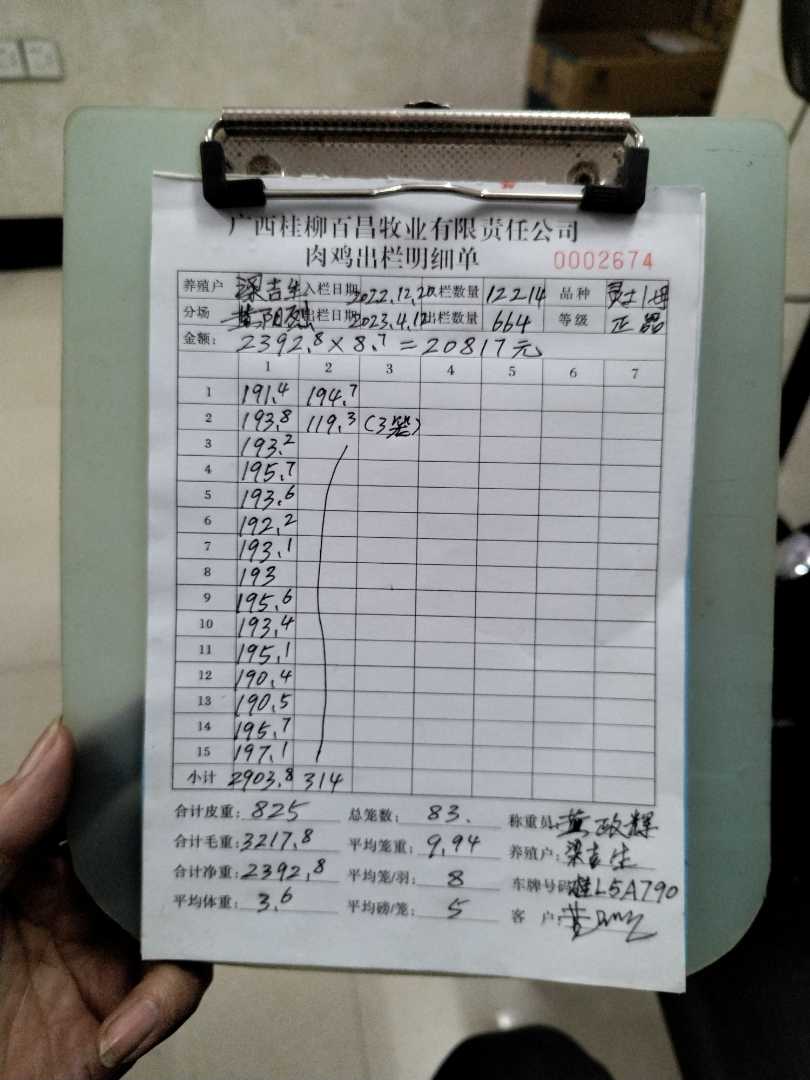 广西桂柳百昌牧业有限责任公司
肉鸡出栏明细单 0002674
养殖户 梁吉生 入栏日期 2022.12.20 入栏数量 12214 品种
分场 出栏日期 2023.4.12 出栏数量 664 等级 正品
金额: 2392.8 × 8.7 = 20817元
1 2 3 4 5 6 7
1 191.4 194.7
2 193.8 119.3 (3笼)
3 193.2
4 195.7
5 193.6
6 192.2
7 193.1
8 193
9 195.6
10 193.4
11 195.1
12 190.4
13 190.5
14 195.7
15 197.1
小计 2903.8 314
合计皮重: 825 总笼数: 83. 称重员: 黄政辉
合计毛重: 3217.8 平均笼重: 9.94 养殖户: 梁吉生
合计净重: 2392.8 平均笼/羽: 8 车牌号码: 桂L5A790
平均体重: 3.6 平均磅/笼: 5 客户: